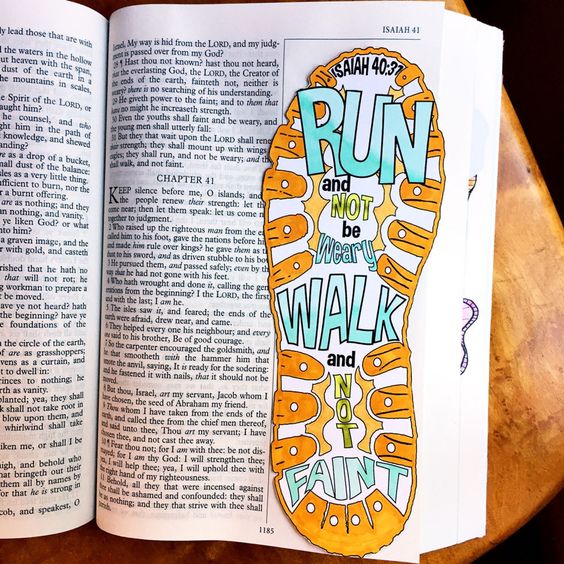 ly lead those that are with
the waters in the hollow
ut heaven with the span,
dust of the earth in a
the mountains in scales,
he Spirit of the LORD, or
aught him?
he counsel, and who
ght him in the path of
knowledge, and shewed
anding?
are as a drop of a bucket,
small dust of the balance:
isles as a very little thing.
ufficient to burn, nor the
r a burnt offering.
are as nothing; and they
nothing, and vanity.
ye liken God? or what
to him?
a graven image, and the
r with gold, and casteth
rished that he hath no
that will not rot; he
g workman to prepare a
t be moved.
ave ye not heard? hath
the beginning? have ye
e foundations of the
the circle of the earth,
are as grasshoppers;
vens as a curtain, and
t to dwell in:
princes to nothing; he
rth as vanity.
planted; yea, they shall
hall not take root in
blow upon them, and
whirlwind shall take
iken me, or shall I be
igh, and behold who
hat bringeth out their
hem all by names by
that he is strong in
cob, and speakest, O
ISAIAH 41
Israel, My way is hid from the LORD, and my judg-
is passed over from my God?
28 ¶ Hast thou not known? hast thou not heard,
that the everlasting God, the LORD, the Creator of
the ends of the earth, fainteth not, neither is
weary? there is no searching of his understanding.
29 He giveth power to the faint; and to them that
have no might he increaseth strength.
30 Even the youths shall faint and be weary, and
the young men shall utterly fall:
31 But they that wait upon the LORD shall rene
their strength; they shall mount up with wings
eagles; they shall run, and not be weary; and
shall walk, and not faint.
CHAPTER 41
KEEP silence before me, O islands; and
the people renew their strength: let th
come near; then let them speak: let us come n
together to judgment.
2 Who raised up the righteous man from the e
called him to his foot, gave the nations before h
and made him rule over kings? he gave them as t
dust to his sword, and as driven stubble to his bo
3 He pursued them, and passed safely; even by
way that he had not gone with his feet.
4 Who hath wrought and done it, calling the gen
rations from the beginning? I the LORD, the first
and with the last; I am he.
5 The isles saw it, and feared; the ends of the
earth were afraid, drew near, and came.
6 They helped every one his neighbour; and every
one said to his brother, Be of good courage.
7 So the carpenter encouraged the goldsmith, and
he that smootheth with the hammer him that
smote the anvil, saying, It is ready for the sodering:
and he fastened it with nails, that it should not be
moved.
8 But thou, Israel, art my servant, Jacob whom I
have chosen, the seed of Abraham my friend.
9 Thou whom I have taken from the ends of the
earth, and called thee from the chief men thereof,
and said unto thee, Thou art my servant; I have
chosen thee, and not cast thee away.
10 ¶ Fear thou not; for I am with thee: be not dis-
mayed; for I am thy God: I will strengthen thee;
yea, I will help thee; yea, I will uphold thee with
the right hand of my righteousness.
11 Behold, all they that were incensed against
thee shall be ashamed and confounded: they shall
be as nothing; and they that strive with thee shall
1185
ISAIAH 40:31
RUN
and
NOT
be
Weary
WALK
and
NOT
FAINT